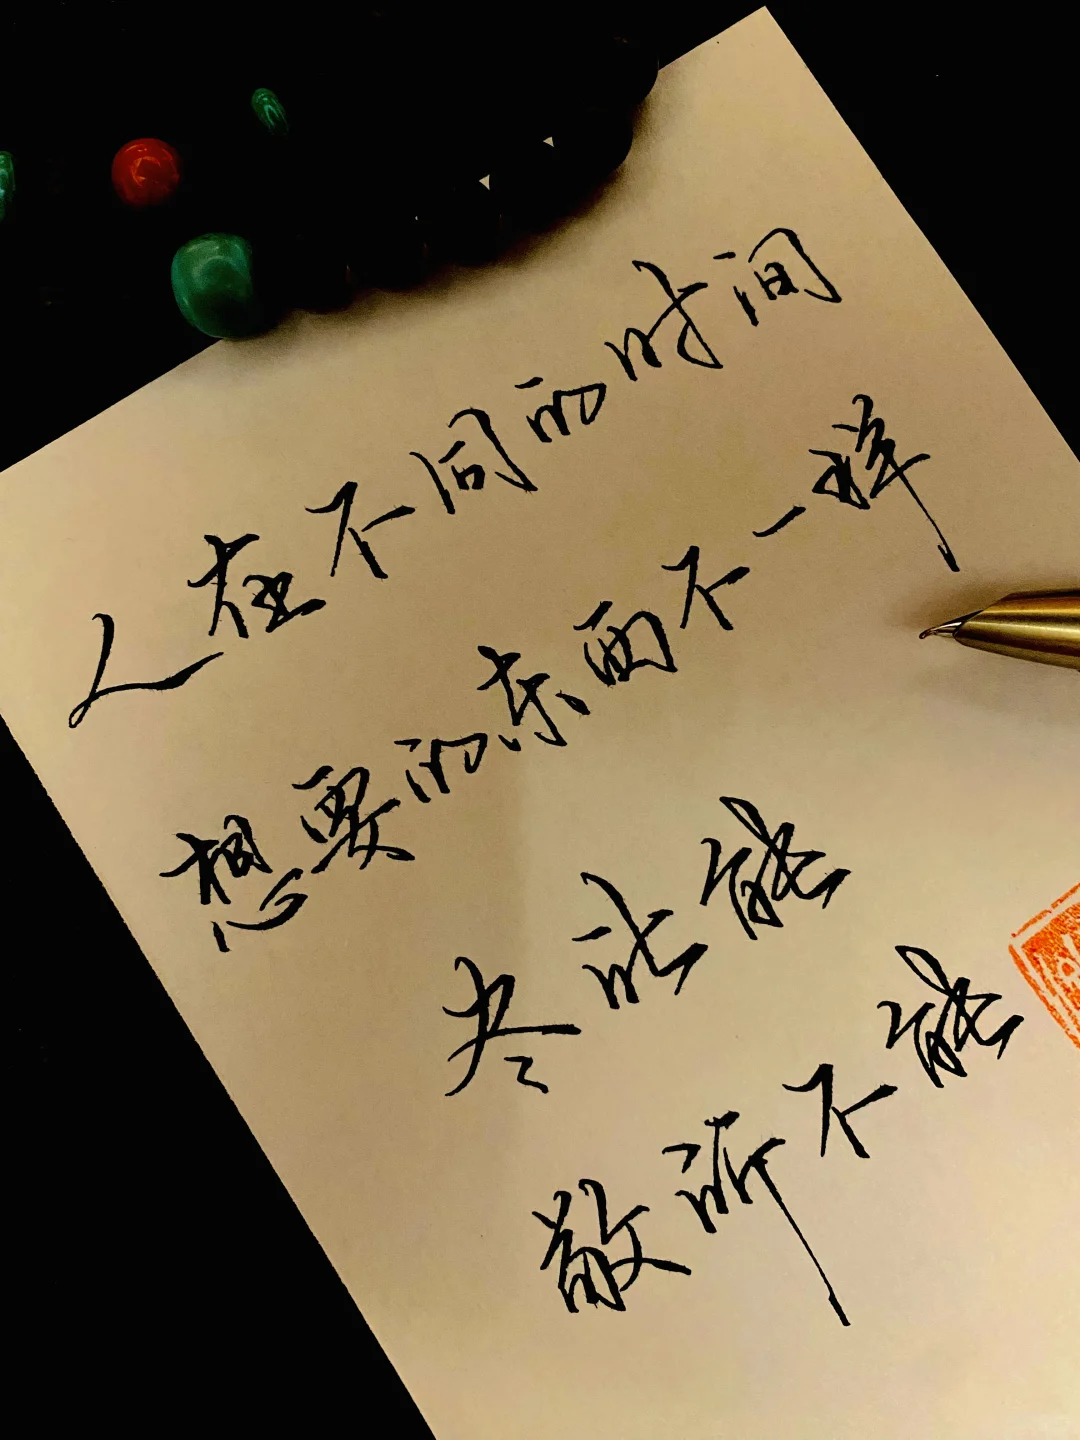 人在不同的时间
想要的东西不一样
尽此能
敬所不能